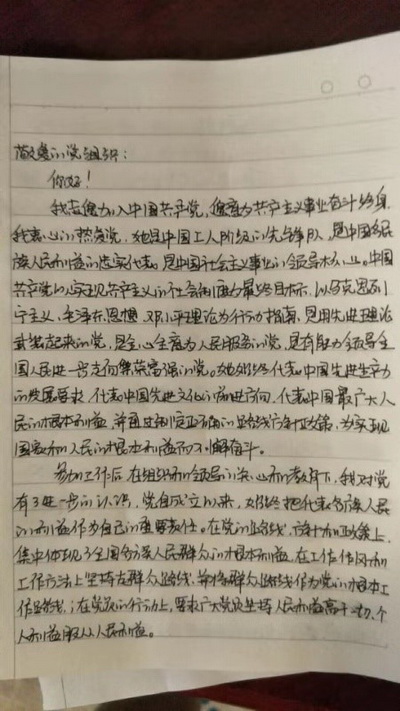 敬爱的党组织:
你好!
我志愿加入中国共产党,愿意为共产主义事业奋斗终身
我衷心的热爱党,她是中国工人阶级的先锋队,是中国各民
族人民利益的忠实代表,是中国社会主义事业的领导核心。中国
共产党以实现共产主义的社会制度为最终目标,以马克思列
宁主义、毛泽东思想、邓小平理论为行动指南,是用先进理论
武装起来的党,是全心全意为人民服务的党,是有能力领导全
国人民进一步走向繁荣富强的党。她始终代表中国先进生产力
的发展要求,代表中国先进文化的前进方向,代表中国最广大人
民的根本利益,并通过制定正确的路线方针政策,为实现
国家和人民的根本利益而不懈奋斗。
参加工作后在组织和领导的关心和教育下,我对党
有了进一步的认识,党自成立以来,始终把代表各族人民
的利益作为自己的重要责任。在党的路线、方针和政策上,
集中体现了全国各族人民群众的根本利益,在工作作风和
工作方法上坚持走群众路线,并将群众路线作为党的根本工
作路线;在党员的行动上,要求广大党员坚持人民利益高于一切,个
人利益服从人民利益。